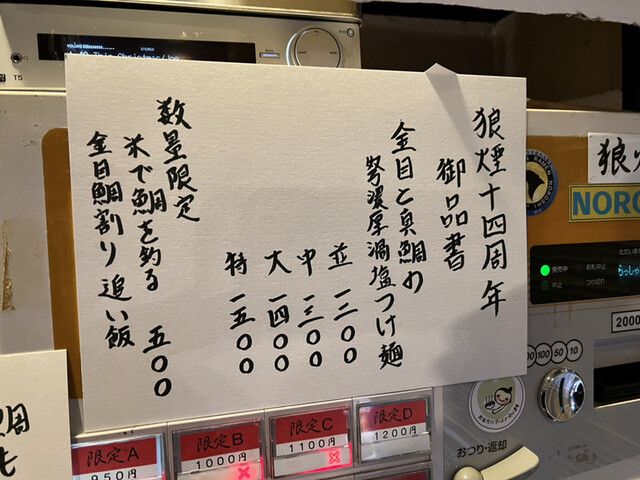 狼煙十四周年
御品書
金目と真鯛の
弩濃厚渦塩つけ麺
並 一二〇〇
中 一三〇〇
大 一四〇〇
特 一五〇〇
数量限定
米で鯛を釣る
金目鯛割り追い飯 五〇〇
VOLUME
STEREO
T5
狼
NORO
発売中
お札中止
中止
つり切れ
2000
100 50 10
おつり・返却
鯛
限定A
950円
限定B
1000円
限定C
1100円
限定D
1200円